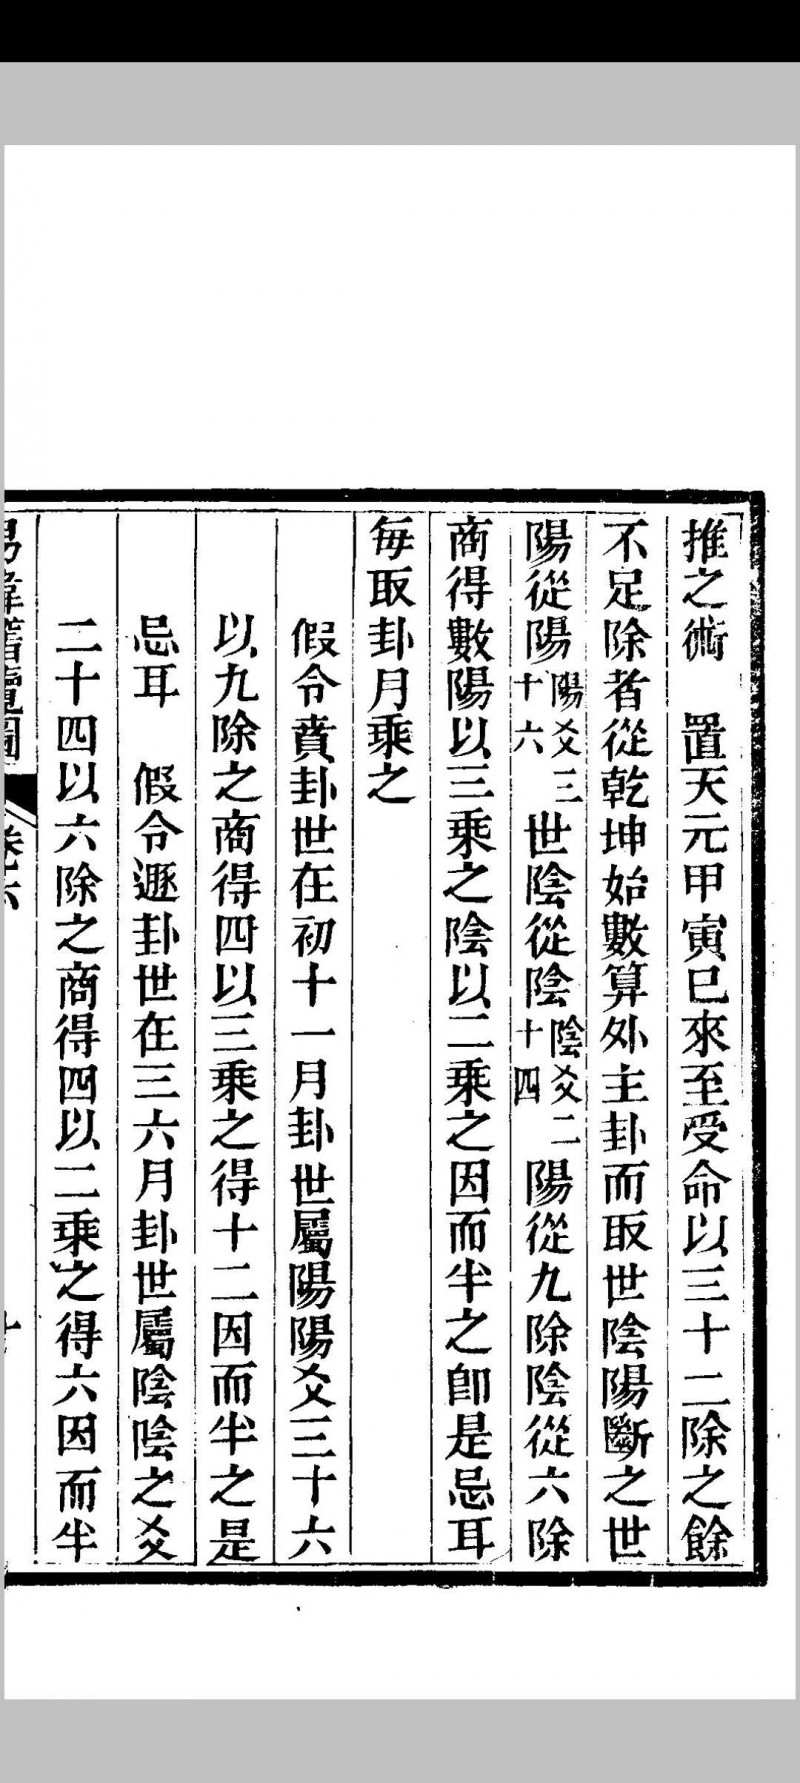 推之術　置天元甲寅已來至受命以三十二除之餘
不足除者從乾坤始數算外主卦而取世陰陽斷之世
陽從陽陽爻三十六世陰從陰陰爻二十四陽從九除陰從六除
商得數陽以三乘之陰以二乘之因而半之卽是忌耳
每取卦月乘之
假令賁卦世在初十一月卦世屬陽陽爻三十六
以九除之商得四以三乘之得十二因而半之是
忌耳　假令遯卦世在三六月卦世屬陰陰之爻
二十四以六除之商得四以二乘之得六因而半
易緯稽覽圖　卷六